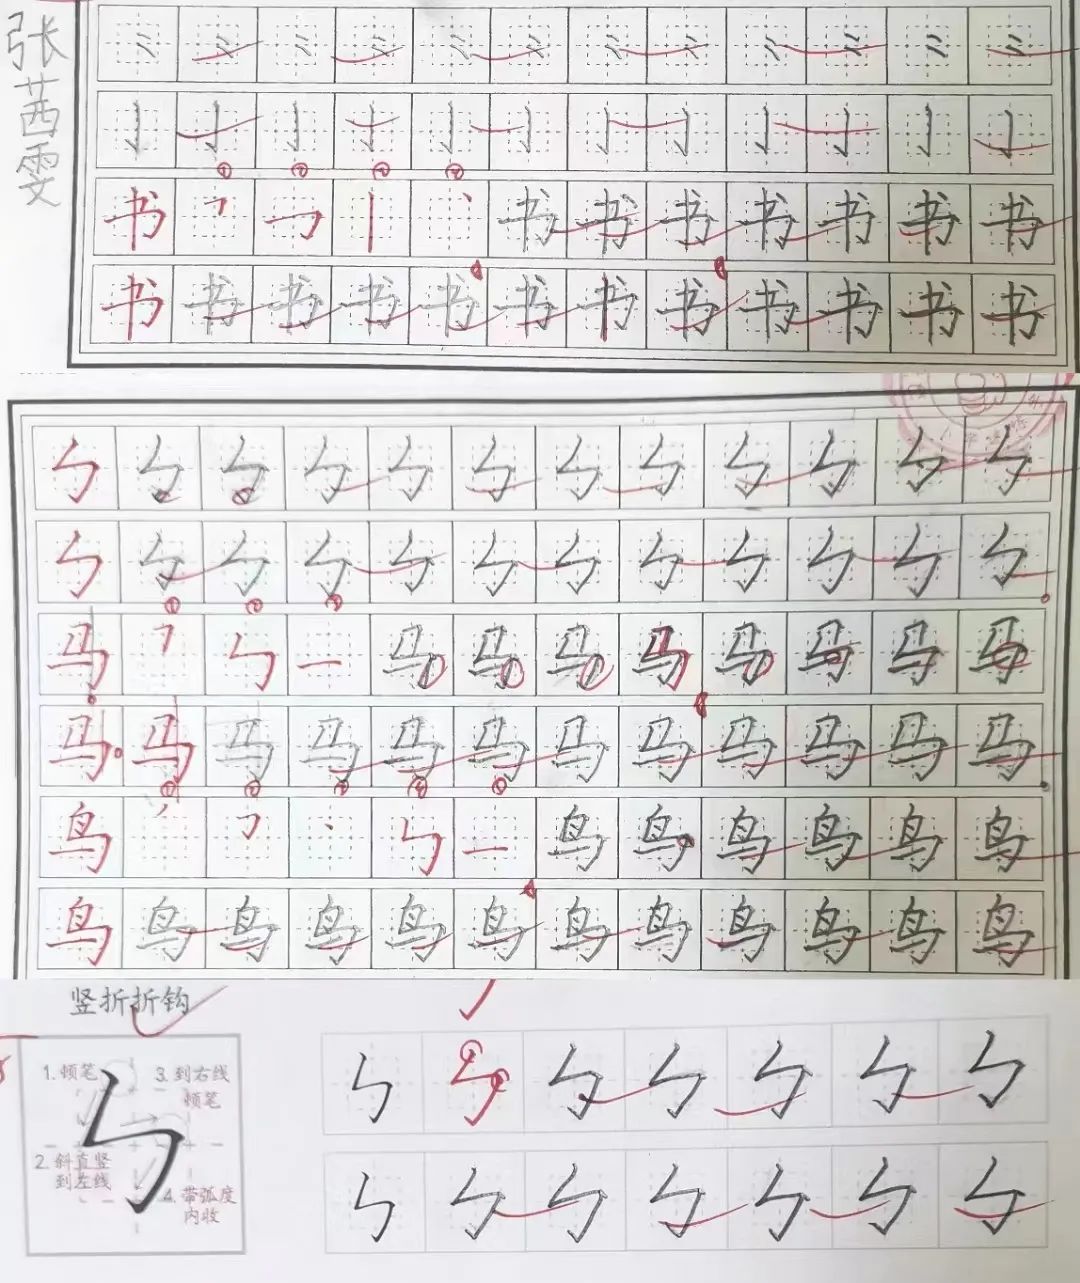 张茜雯
① ② ③ ④
书 书 书 书 书 书 书 书
书 书 书 书 书 书 书 书 书 书 书 书
① ② ③
马 一 马 马 马 马 马 马 马 马
马 马 马 马 马 马 马 马 马 马 马 马
① ② ③ ④ ⑤
鸟 一 鸟 鸟 鸟 鸟 鸟 鸟
鸟 鸟 鸟 鸟 鸟 鸟 鸟 鸟 鸟 鸟 鸟 鸟
竖折折钩
1.顿笔
3.到右线
顿笔
2.斜直竖
到左线
4.带弧度
内收